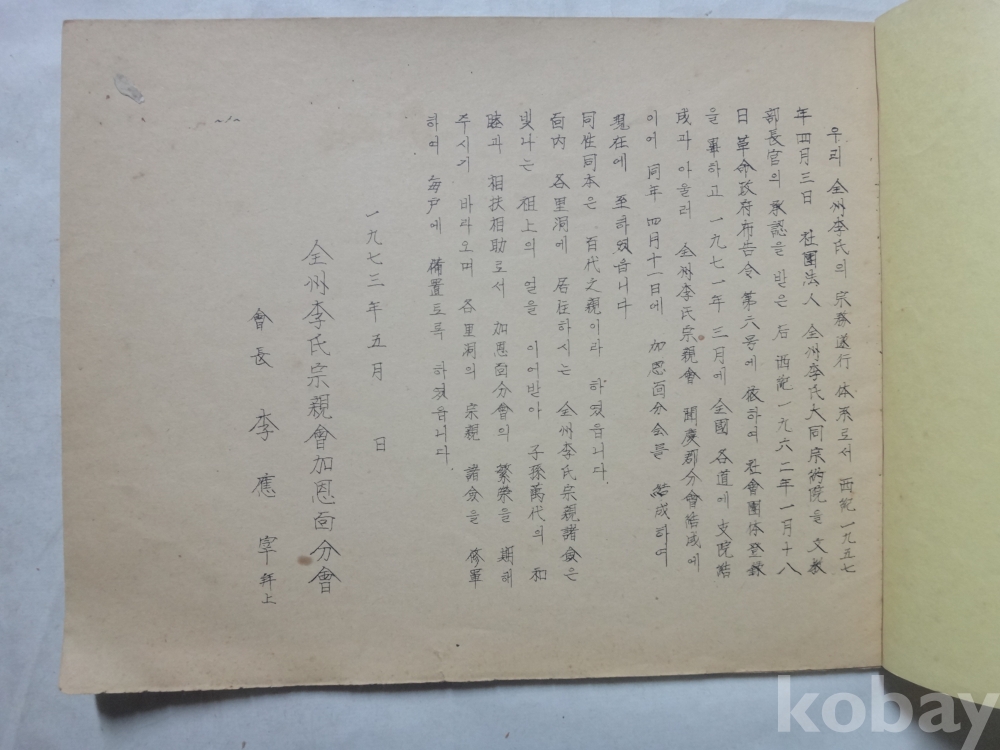 우리 全州李氏의 宗務遂行 体系로서 西紀 一九五七
年 四月三日 社團法人 全州李氏大同宗約院을 文敎
部長官의 承認을 받은 后 西紀 一九六二年 一月十八
日 革命政府布告令 第六号에 依하여 社會團体登錄
을 畢하고 一九七一年 三月에 全國 各道에 支院結
成과 아울러 全州李氏宗親會 聞慶郡分會結成에
이어 同年 四月十一日에 加恩面分会를 結成하여
現在에 至하였읍니다
同性同本은 百代之親이라 하였읍니다.
面內 各里洞에 居住하시는 全州李氏宗親諸僉은
빛나는 祖上의 얼을 이어받아 子孫萬代의 和
睦과 相扶相助로서 加恩面分會의 繁榮을 期해
주시기 바라오며 各里洞의 宗親 諸僉을 修單
하여 每戶에 備置토록 하였읍니다.
一九七三年 五月 日
全州李氏宗親會加恩面分會
會長 李應宰 拜上
-1-
kobay